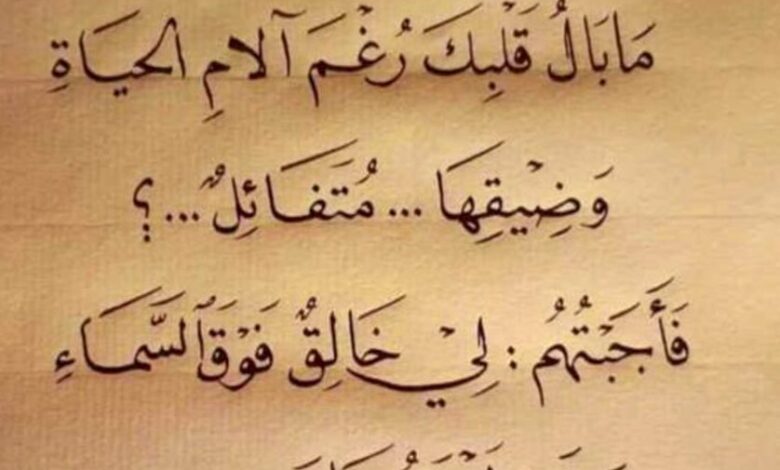 مَا بَالُ قَلْبِكَ رُغْمَ آلامِ الحَيَاةِ
وَضِيْقِهَا ... مُتَفَائِلٌ ... ؟
فَأَجَبْتُهُم : لِيْ خَالِقٌ فَوْقَ ٱلسَّمَاءِ